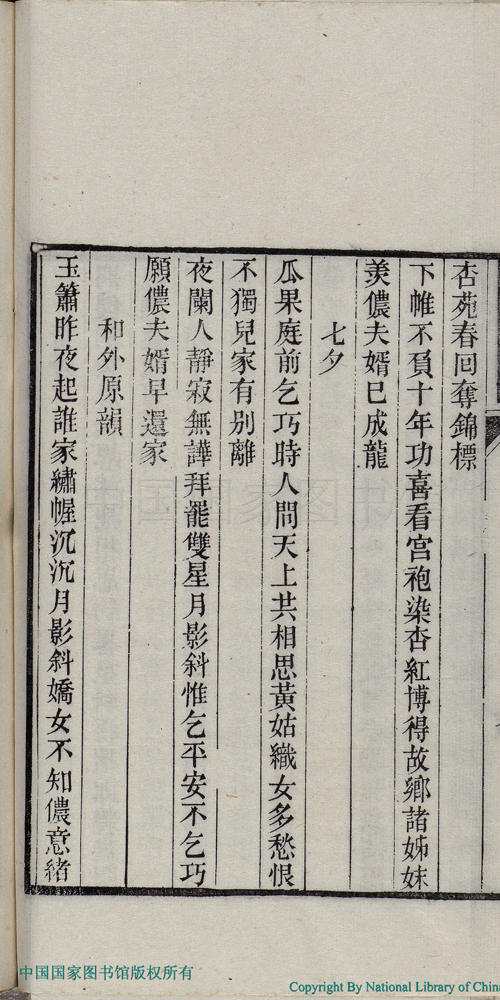 杏苑春回奪錦標
下帷不負十年功喜看宫袍染杏紅博得故鄉諸姊妹
羡儂夫婿已成龍
七夕
瓜果庭前乞巧時人間天上共相思黃姑織女多愁恨
不獨兒家有别離
夜闌人靜寂無譁拜罷雙星月影斜惟乞平安不乞巧
願儂夫婿早還家
和外原韻
玉簫昨夜起誰家繡幄沉沉月影斜嬌女不知儂意緒
中国国家图书馆版权所有
Copyright By National Library of Chin